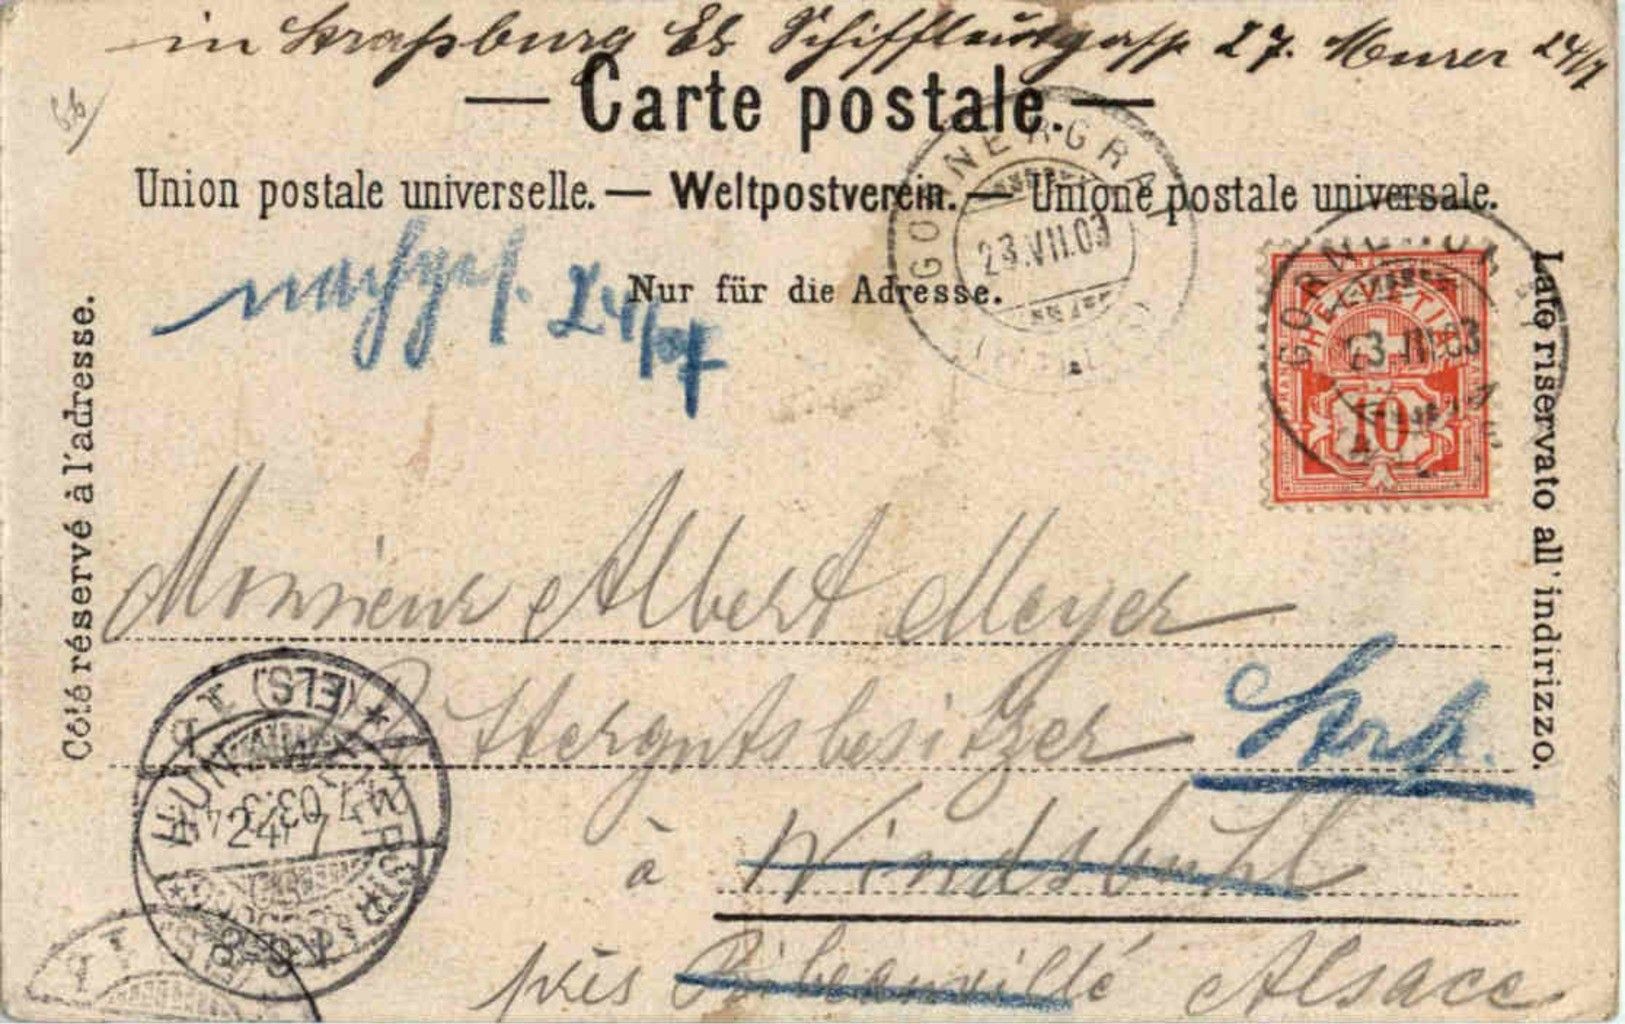 in Straßburg Els Schiffleutgasse 27. Murer 24/7
66
— Carte postale. —
Union postale universelle. — Weltpostverein. — Unione postale universale.
nachges. 24/07
Nur für die Adresse.
GORNERGRA
23.VII.03
GORNER
HELVETIA
23.VII.03
10
Côté réservé à l'adresse.
Lato riservato all' indirizzo.
Monsieur Albert Meyer
Rittergutsbesitzer Strb.
à Windsbuhl
près Ribeauvillé Alsace
HUN (ELS)
24 7 03